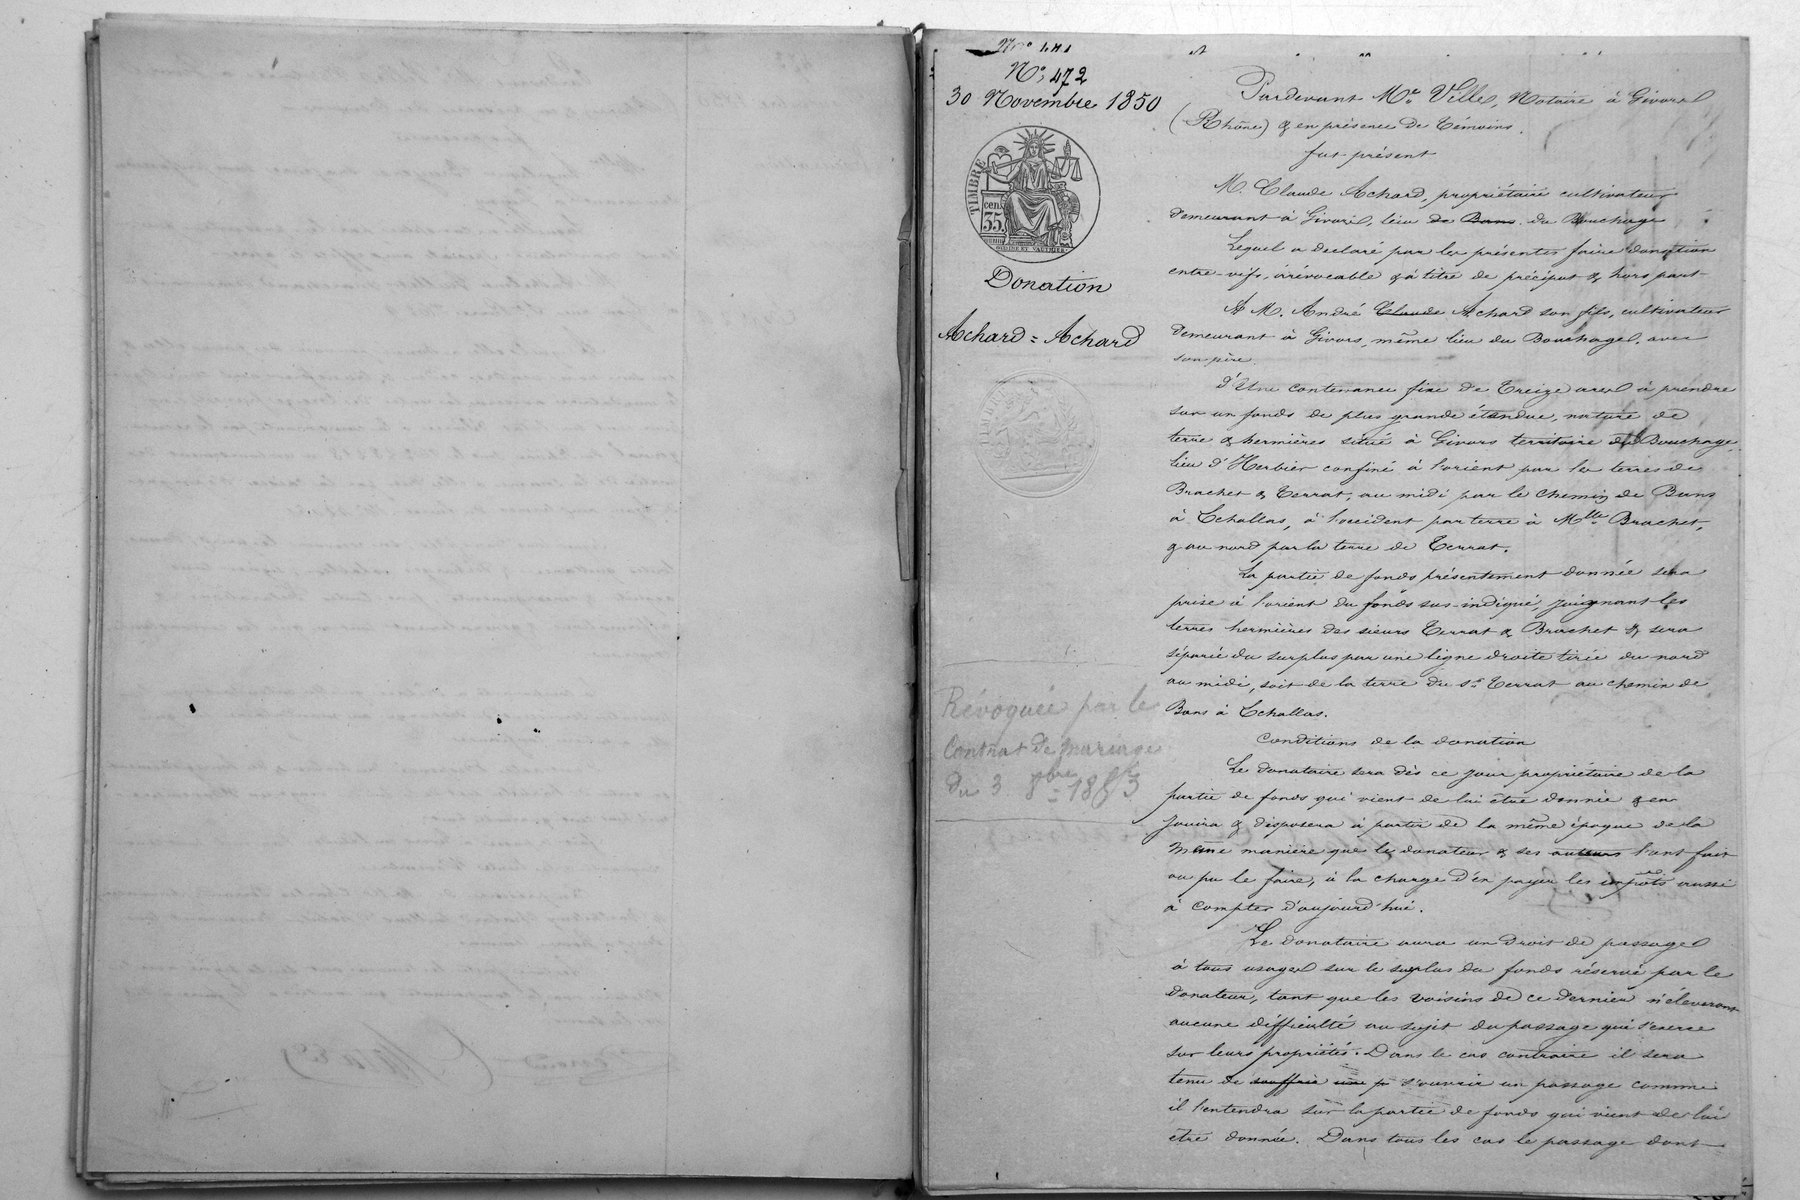 N° 472
30 Novembre 1850
TIMBRE
cen.
35.
Donation
Achard = Achard
Révoquée par le
Contrat de mariage
du 3 8bre 1863
Pardevant Me Ville, Notaire à Givors
(Rhône) & en présence de témoins.
fut présent
M. Claude Achard, propriétaire cultivateur
demeurant à Givors, lieu de Bans. du Bouchage
Lequel a déclaré par les présentes faire donation
entre-vifs, irrévocable & à titre de préciput & hors part
A M. André Claude Achard son fils, cultivateur
demeurant à Givors, même lieu du Bouchage, avec
son père.
d'Une contenance fixe de treize ares à prendre
sur un fonds de plus grande étendue, nature de
terre & hermières situé à Givors territoire du Bouchage,
lieu d'Herbier confiné à l'orient par les terres de
Brachet & Terrat, au midi par le chemin de Bans
à Echallas, à l'occident par terre à Mlle Brachet,
& au nord par la terre de Terrat.
La partie de fonds présentement donnée sera
prise à l'orient du fonds sus-indiqué, joignant les
terres hermières des sieurs Terrat & Brachet & sera
séparée du surplus par une ligne droite tirée du nord
au midi, soit de la terre du sr Terrat au chemin de
Bans à Echallas.
Conditions de la donation
Le donataire sera dès ce jour propriétaire de la
partie de fonds qui vient de lui être donnée & en
jouira & disposera à partir de la même époque de la
même manière que le donateur & ses auteurs l'ont fait
ou pu le faire, à la charge d'en payer les impôts aussi
à compter d'aujourd'hui.
Le donataire aura un droit de passage
à tous usages sur le surplus du fonds réservé par le
donateur, tant que les voisins de ce dernier n'éleveront
aucune difficulté au sujet du passage qui s'exerce
sur leurs propriétés. Dans le cas contraire il sera
tenu de souffrir un p s'ouvrir un passage comme
il l'entendra sur la partie de fonds qui vient de lui
être donnée. Dans tous les cas le passage dont